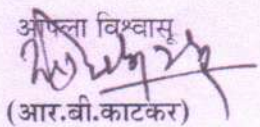 आपला विश्वासू
(आर.बी.काटकर)